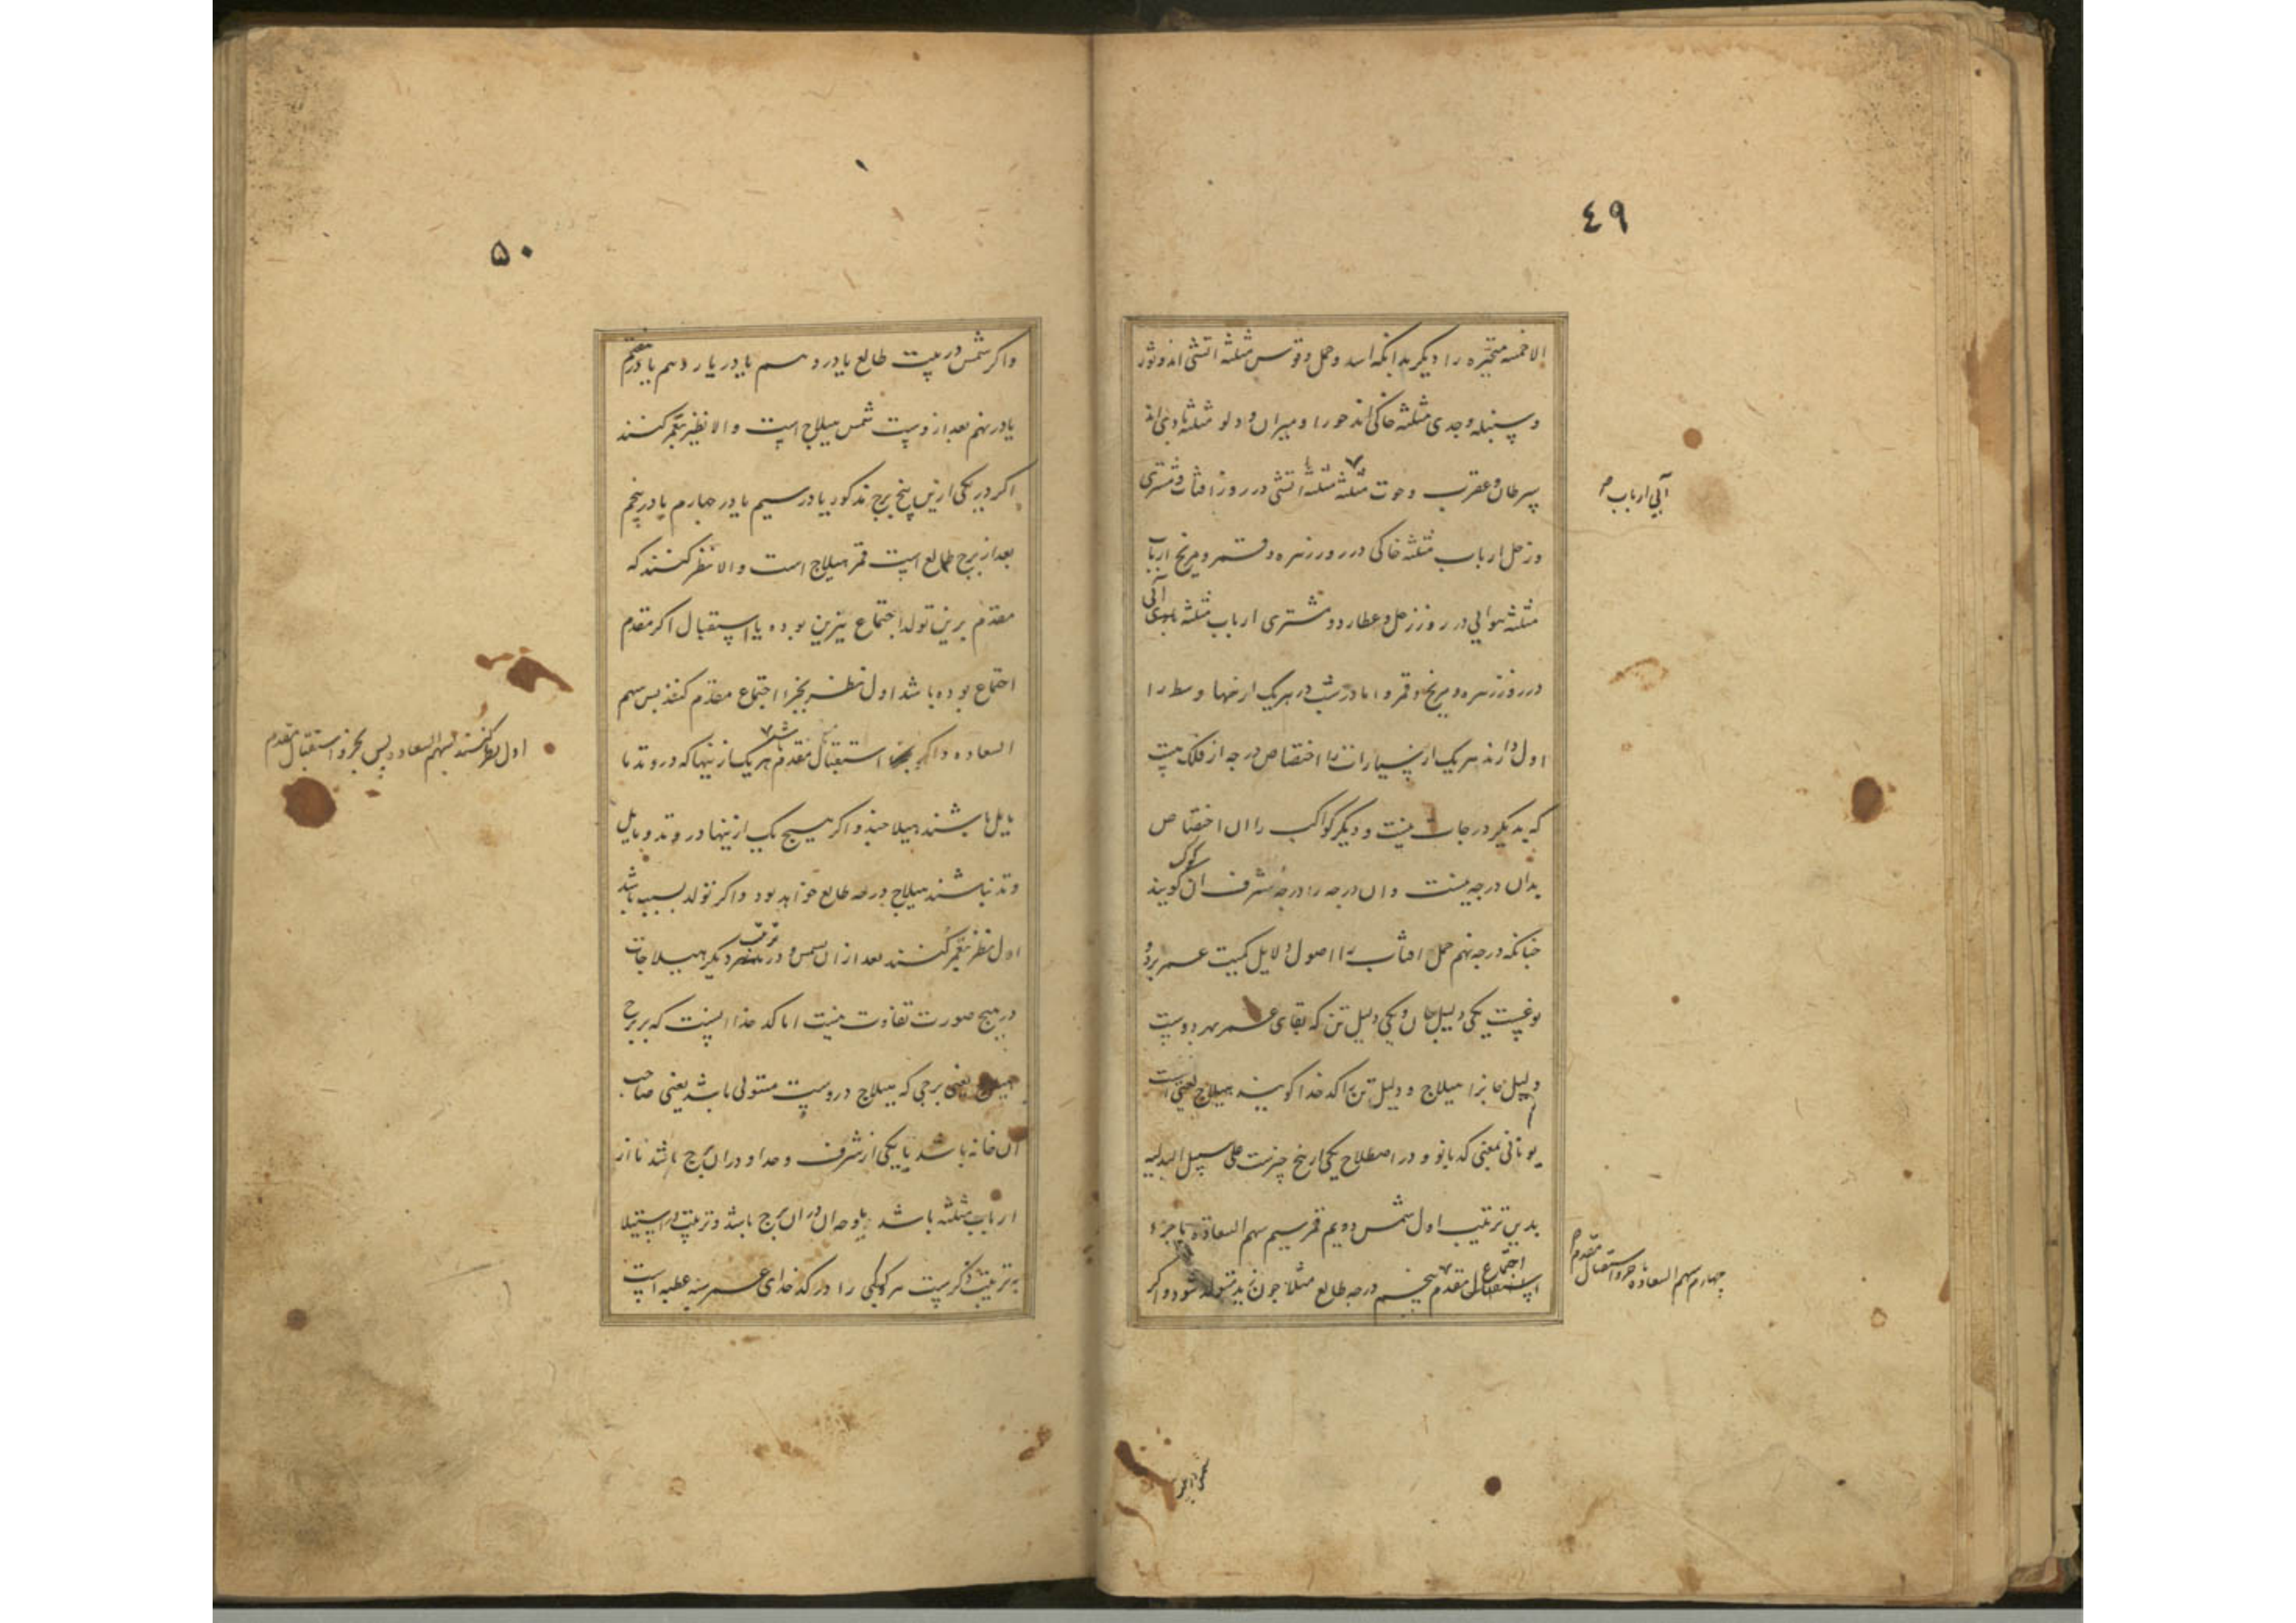 ٤٩
الا خمسه متحیره را دیگر بدانکه اسد و حمل و قوس مثلثه اتشی اند و ثور
و سنبله و جدی مثلثه خاکی اند جوزا و میزان و دلو مثلثه بادی اند
سرطان و عقرب و حوت مثلثه مثلثه اتشی در روز افتاب و مشتری
آبی ارباب
و زحل ارباب مثلثه خاکی در روز زهره و قمر و مریخ ارباب
مثلثه هوایی در روز زحل و عطارد و مشتری ارباب مثلثه آبی
در روز زهره و مریخ و قمر و اما در شب در هریک ازینها وسط را
اول دارند هریک از سیارات را اختصاص درجه از فلک هست
که بدیگر درجات نیست و دیگر کواکب را ان اختصاص
بدان درجه نیست و ان درجه را درجه شرف ان کوکب گویند
چنانکه درجه نهم حمل افتاب را اصول دلایل کمیت عمر بر دو
نوعست یکی دلیل جان و یکی دلیل تن که بقای عمر بهر دوست
دلیل جانرا هیلاج و دلیل تن را کدخدا گویند هیلاج لغتی است
یونانی بمعنی کدبانو و در اصطلاح یکی از پنج چیزست علی سبیل البدلیه
بدین ترتیب اول شمس دویم قمر سیم سهم السعاده یا جزء
اجتماع
استقبال مقدم پنجم درجه طالع مثلا چون بد متولد شود و اگر
چهارم سهم السعاده جزو استقبال مقدم
٥٠
واکر شمس در بیت طالع یا در دهم یا در یازدهم یا در هفتم
یا در نهم بعد ازوست شمس هیلاج است والا نظر بقمر کنند
اکر در یکی ازین پنج برج مذکور یا در سیم یا در چهارم یا در پنجم
بعد از برج طالع است قمر هیلاج است والا نظر کنند که
مقدم برین تولد اجتماع نیرین بوده یا استقبال اکر مقدم
اجتماع بوده باشد اول نظر بجزء اجتماع مقدم کنند پس سهم
السعاده و اکر استقبال مقدم هریک ازینها که در وتد یا
اول نظر کنند بسهم السعاده پس بجزو استقبال مقدم
مایل باشند هیلاجند و اکر هیچ یک ازینها در وتد و مایل
وتد نباشند هیلاج درجه طالع خواهد بود و اکر تولد بشب باشد
اول نظر بقمر کنند بعد از ان بشمس و در ترتیب دیگر هیلاجات
در هیچ صورت تفاوت نیست اما کدخدا انست که بر برج
هیلاج یعنی برجی که هیلاج دروست مستولی باشد یعنی صاحب
ان خانه باشد یا یکی از شرف و حد او در ان برج باشد یا از
ارباب مثلثه باشد یا وجه ان در ان برج باشد و ترتیب در استیلا
به ترتیب ذکرست هر کوکبی را در کدخدای عمر سه عطیه است